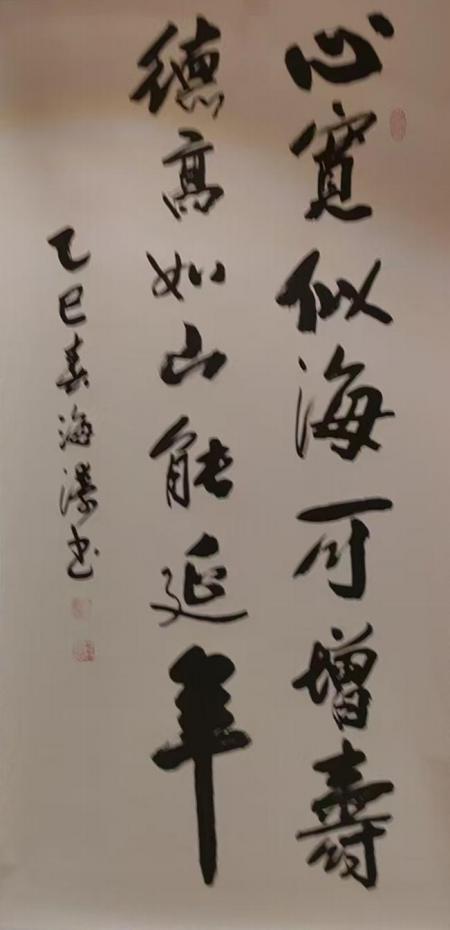 心寬似海可增壽
德高如山能延年
乙巳春海濤书